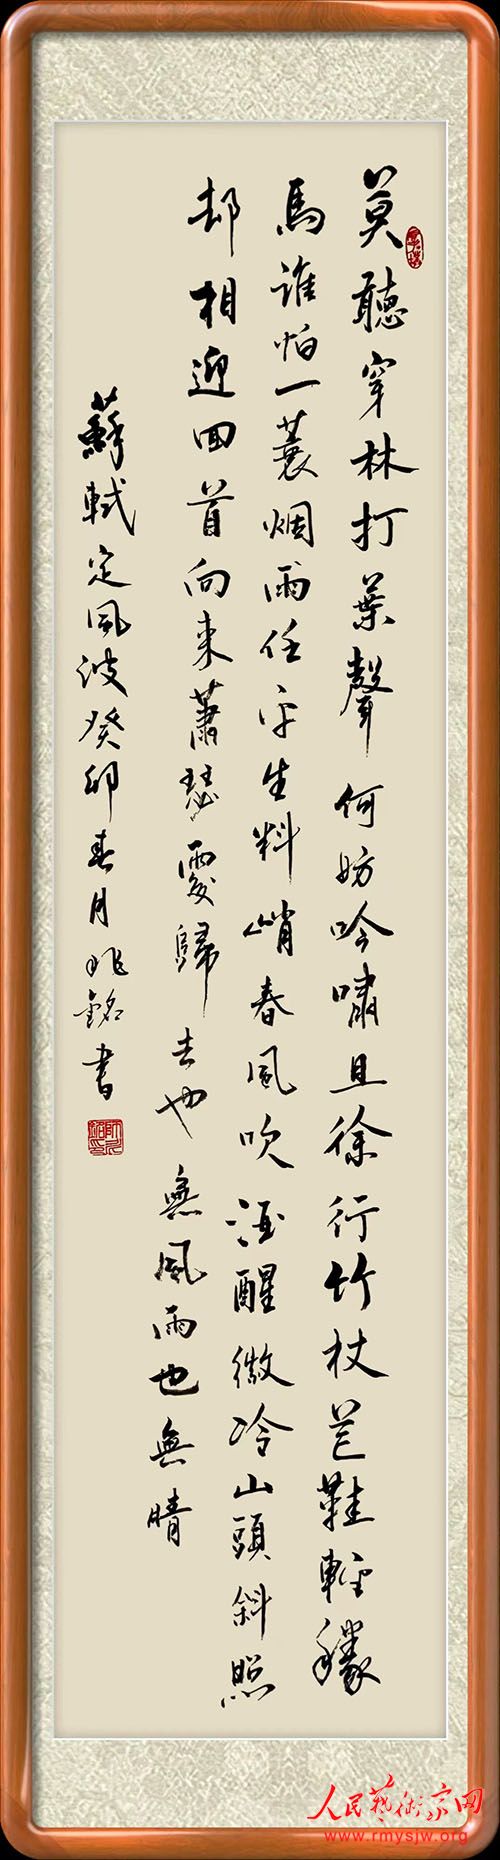 莫聽穿林打葉聲何妨吟嘯且徐行竹杖芒鞋輕勝
馬誰怕一蓑烟雨任平生料峭春風吹酒醒微冷山頭斜照
却相迎回首向来蕭瑟處歸去也無風雨也無晴
蘇軾定風波癸卯春月兆銘書
人民藝術家网
www.rmysjw.org